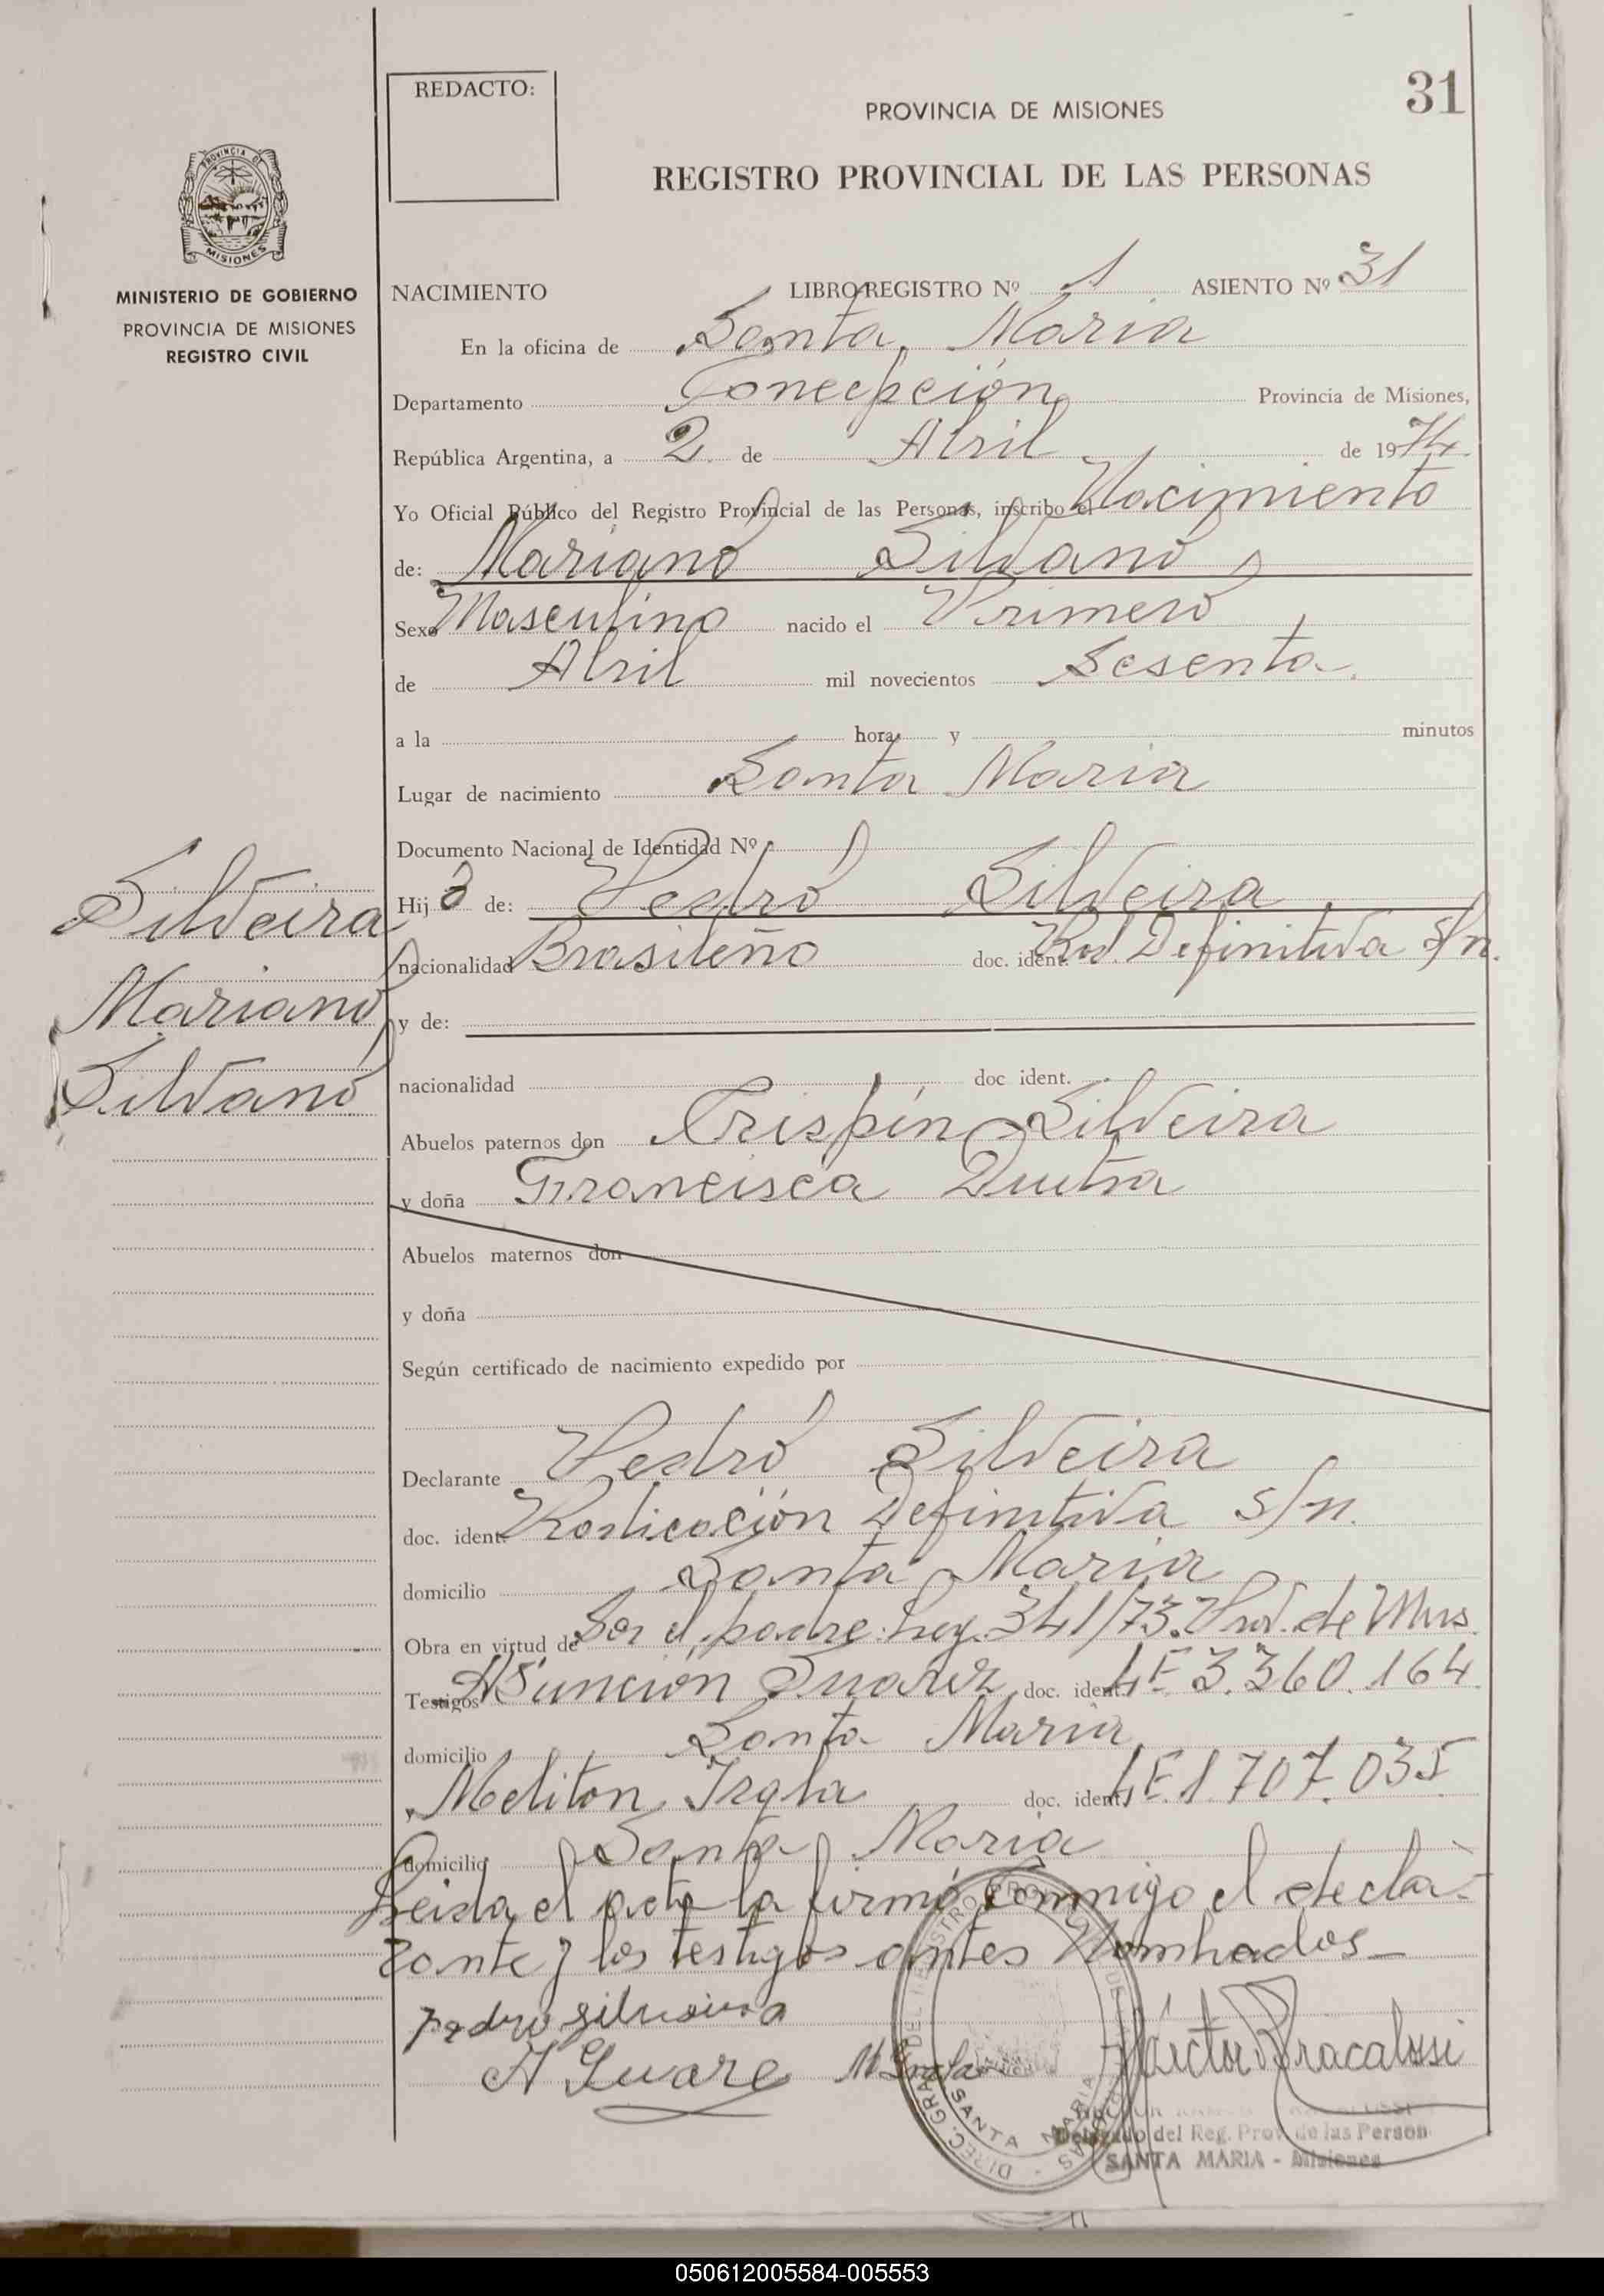 31
REDACTO:
PROVINCIA DE MISIONES
REGISTRO PROVINCIAL DE LAS PERSONAS
PROVINCIA DE
MISIONES
MINISTERIO DE GOBIERNO
PROVINCIA DE MISIONES
REGISTRO CIVIL
NACIMIENTO LIBRO REGISTRO Nº 1 ASIENTO Nº 31
En la oficina de Santa Maria
Departamento Concepción Provincia de Misiones,
República Argentina, a 2 de Abril de 1974
Yo Oficial Público del Registro Provincial de las Personas, inscribo el Nacimiento
de: Mariano Silvano
Sexo Masculino nacido el Primero
de Abril mil novecientos Sesenta
a la hora y minutos
Lugar de nacimiento Santa Maria
Documento Nacional de Identidad Nº
Silveira
Mariano
Silvano
Hijo de: Pedro Silveira
nacionalidad Brasileño doc. ident. Rad. Definitiva s/n.
y de:
nacionalidad doc ident.
Abuelos paternos don Crispín Silveira
y doña Francisca Dutra
Abuelos maternos don
y doña
Según certificado de nacimiento expedido por
Declarante Pedro Silveira
doc. ident. Definitiva s/n.
domicilio Santa Maria
Obra en virtud de Ser el padre. Ley. 341/73. Prov. de Mnes.
Testigos Asunción Suarez doc. ident. LE 3.360.164
domicilio Santa Maria
Meliton doc. ident. LE. 1.707.035
domicilio Santa Maria
Leida el acta la firmó conmigo el decla-
rante y los testigos antes Nombrados
pedro silveira
A Suare
Héctor Bracalossi
DIREC. GRAL. DEL REGISTRO PROV. DE LAS PERSONAS
SANTA MARIA
Delegado del Reg. Prov. de las Person.
SANTA MARIA - Misiones
050612005584-005553